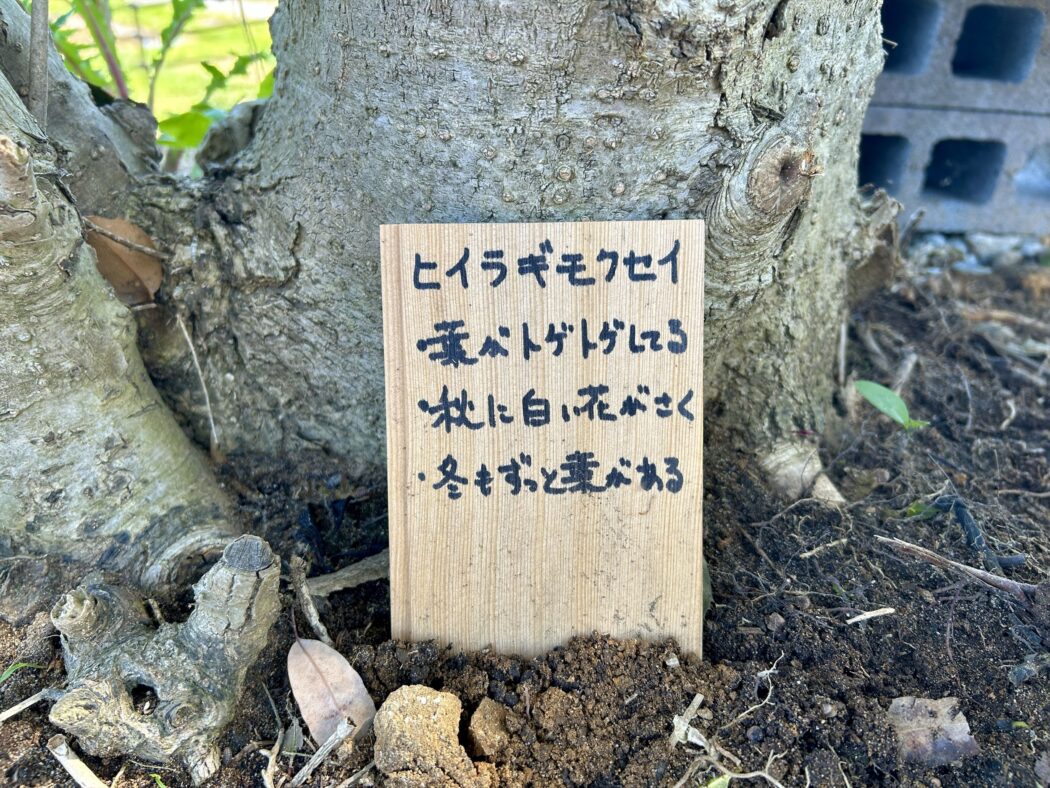 ヒイラギモクセイ
・葉がトゲトゲしてる
・秋に白い花がさく
・冬もずっと葉がある